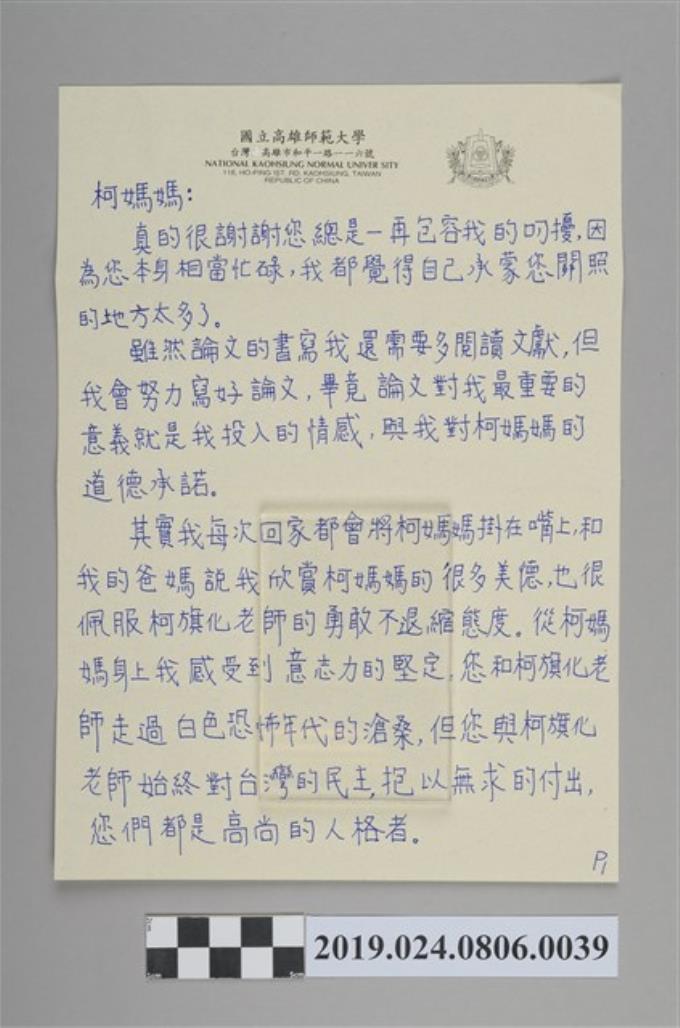 國立高雄師範大學
台灣 高雄市和平一路一一六號
NATIONAL KAOHSIUNG NORMAL UNIVER SITY
116, HO-PING 1ST. RD. KAOHSIUNG, TAIWAN
REPUBLIC OF CHINA
柯媽媽:
真的很謝謝您總是一再包容我的叨擾,因
為您本身相當忙碌,我都覺得自己承蒙您關照
的地方太多了。
雖然論文的書寫我還需要多閱讀文獻,但
我會努力寫好論文,畢竟論文對我最重要的
意義就是我投入的情感,與我對柯媽媽的
道德承諾。
其實我每次回家都會將柯媽媽掛在嘴上,和
我的爸媽說我欣賞柯媽媽的很多美德,也很
佩服柯旗化老師的勇敢不退縮態度。從柯媽
媽身上我感受到意志力的堅定,您和柯旗化老
師走過白色恐怖年代的滄桑,但您與柯旗化
老師始終對台灣的民主,抱以無求的付出,
您們都是高尚的人格者。
P1
2019.024.0806.0039